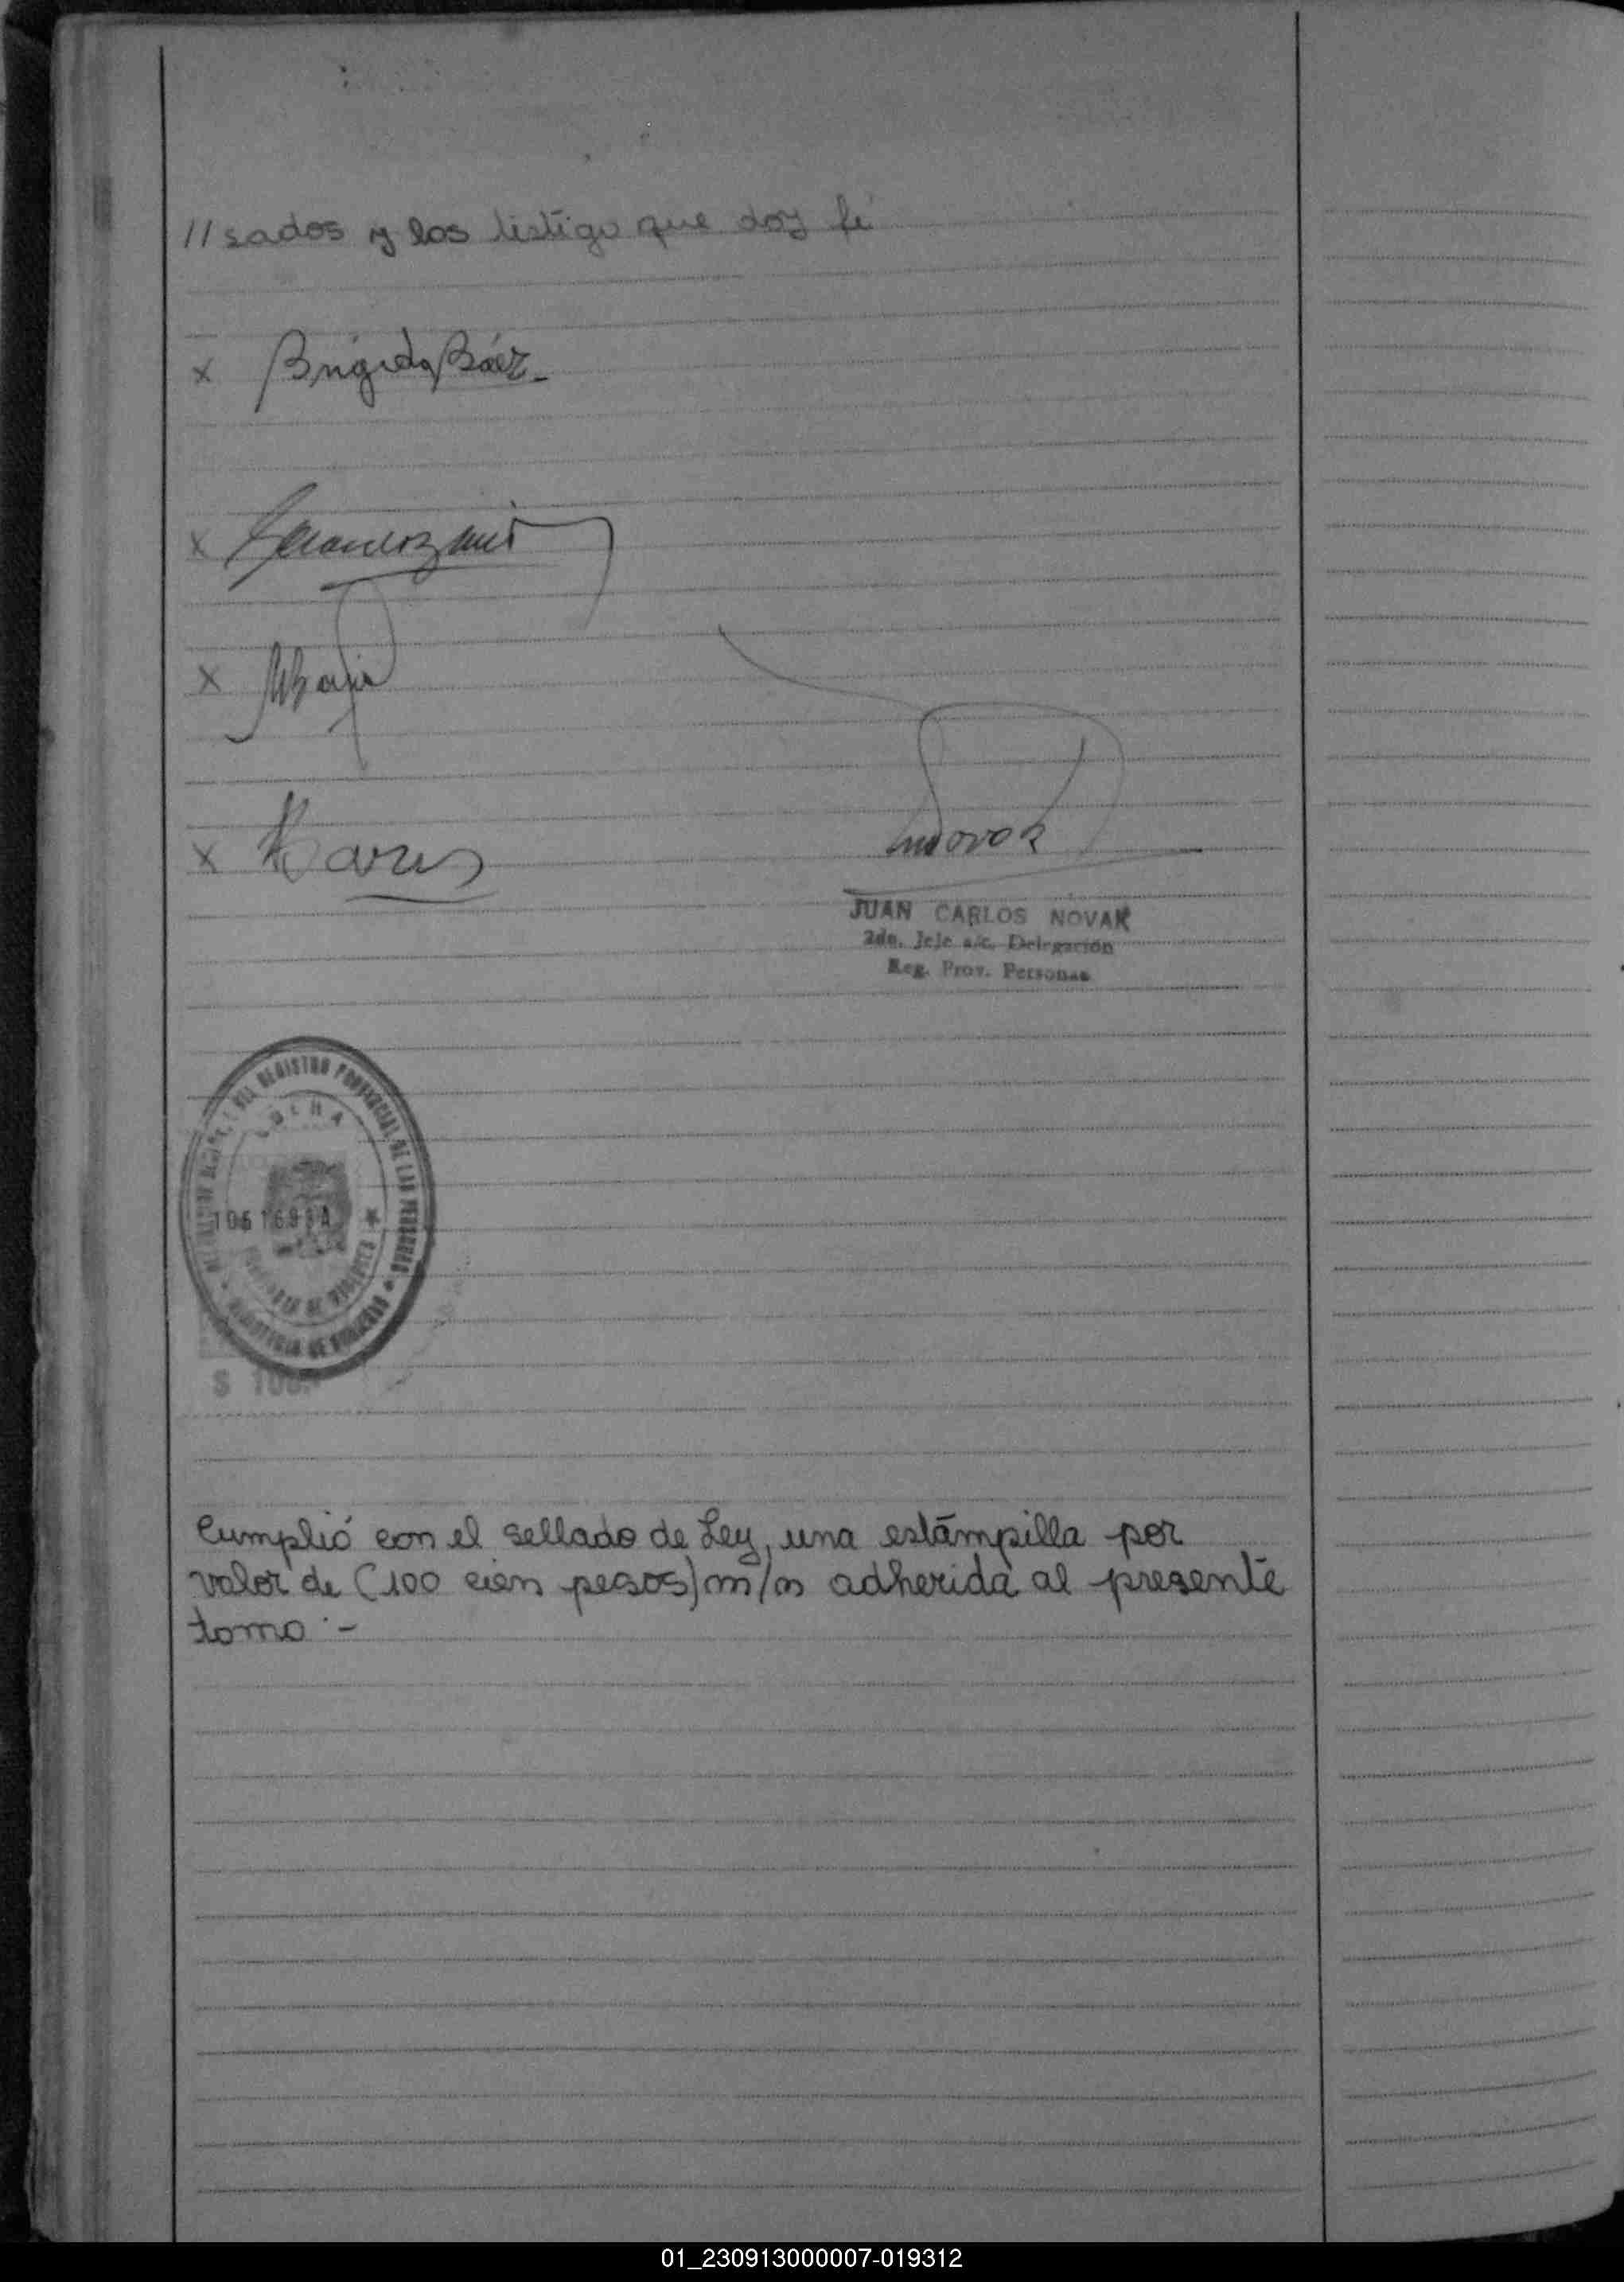 // sados y los testigo que doy fé
x Brígida Báez
x
x
x
Novak
JUAN CARLOS NOVAK
2do. Jefe a/c. Delegación
Reg. Prov. Personas
DEL REGISTRO PROVINCIAL DE LAS PERSONAS
PROVINCIA DE
$ 100.-
Cumplió con el sellado de Ley, una estampilla por
valor de (100 cien pesos) m/n adherida al presente
tomo.-
01_230913000007-019312